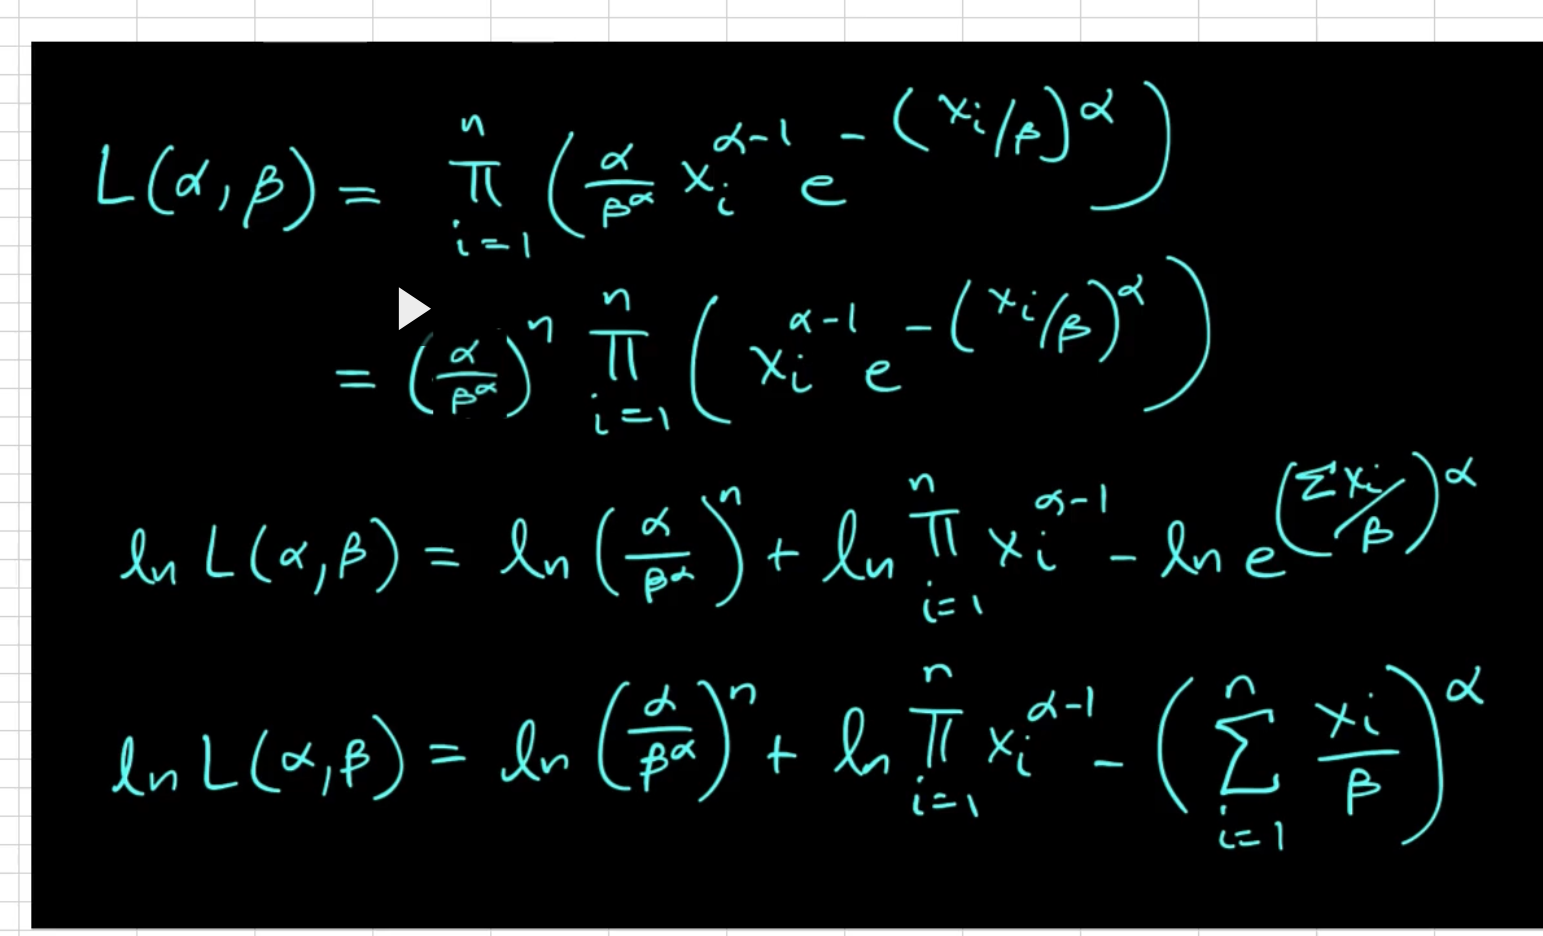 L(α, β) = ∏_{i=1}^{n} ( \frac{α}{β^α} x_i^{α-1} e^{-(x_i/β)^α} )
= ( \frac{α}{β^α} )^n ∏_{i=1}^{n} ( x_i^{α-1} e^{-(x_i/β)^α} )
ln L(α, β) = ln ( \frac{α}{β^α} )^n + ln ∏_{i=1}^{n} x_i^{α-1} - ln e^{(Σx_i/β)^α}
ln L(α, β) = ln ( \frac{α}{β^α} )^n + ln ∏_{i=1}^{n} x_i^{α-1} - ( Σ_{i=1}^{n} \frac{x_i}{β} )^α